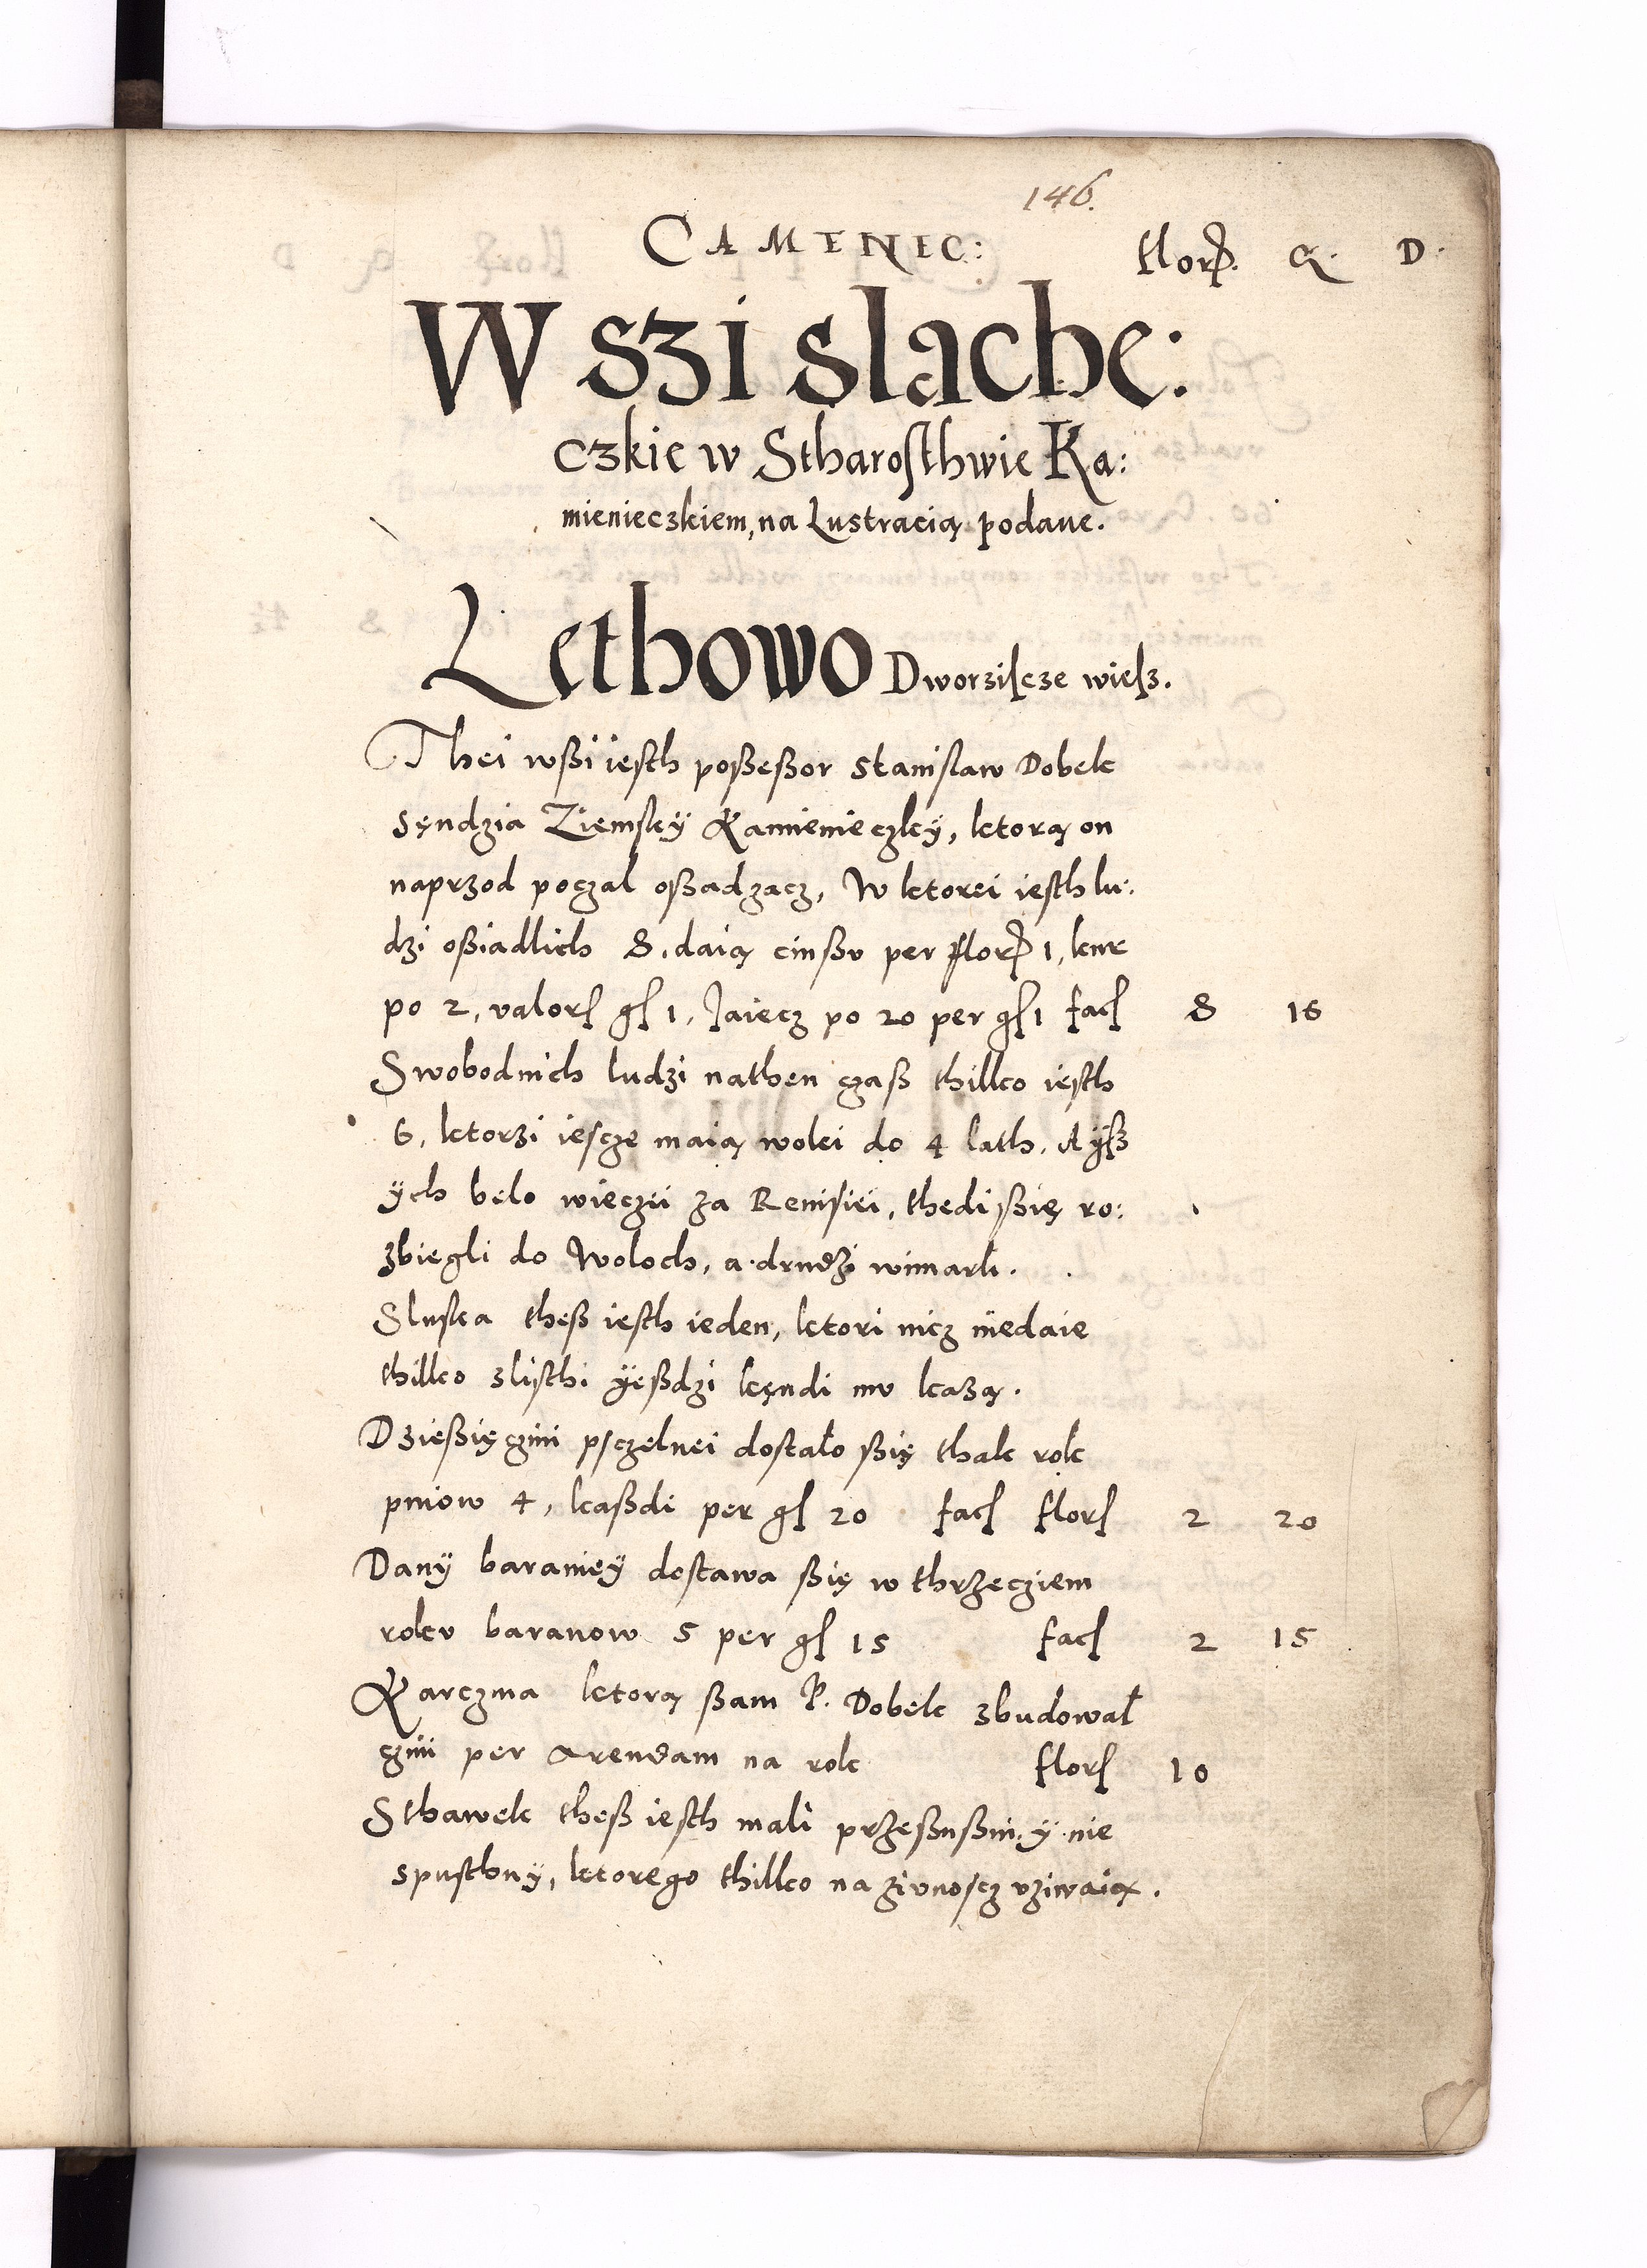 146.
CAMENEC: flor. G. D.
Wszi slache:
czkie w Stharosthwie Ka:
mienieczkiem, na Lustracią podane.
Lethowo Dworziscze wiesz.
Thei wßi iesth poßeßor Stanislaw Dobek
Sęndzia Ziemsky Kamienieczky, ktorą on
naprzod począl oßadzacz, W ktorei iesth lu:
dzi oßiadlich 8, daią cinßv per flor 1, kur
po 2, valor gs 1, Jaiecz po 20 per gs 1 fac 8 16
Swobodnich ludzi nathen czaß thilko iesth
6, ktorzi iescze maią wolei do 4 lath, Ayß
ych belo wieczei za Remisiei, thedi ßię ro:
zbiegli do Woloch, a drudzi wimarli.
Sluska theß iesth ieden, ktori nicz niedaie
thilko zlisthi yeßdzi kęndi mv każą.
Dzießięczini psczelnei dostało ßię thak rok
pniow 4, kaßdi per gs 20 fac flor 2 20
Dany baraniey dostawa ßię w thrzecziem
rokv baranow 5 per gs 15 fac 2 15
Karczma ktorą ßam P. Dobek zbudował
czini per Arendam na rok flor 10
Sthawek theß iesth mali przeßußni y nie
spusthny, ktorego thilko na ziwnoscz vziwaią.